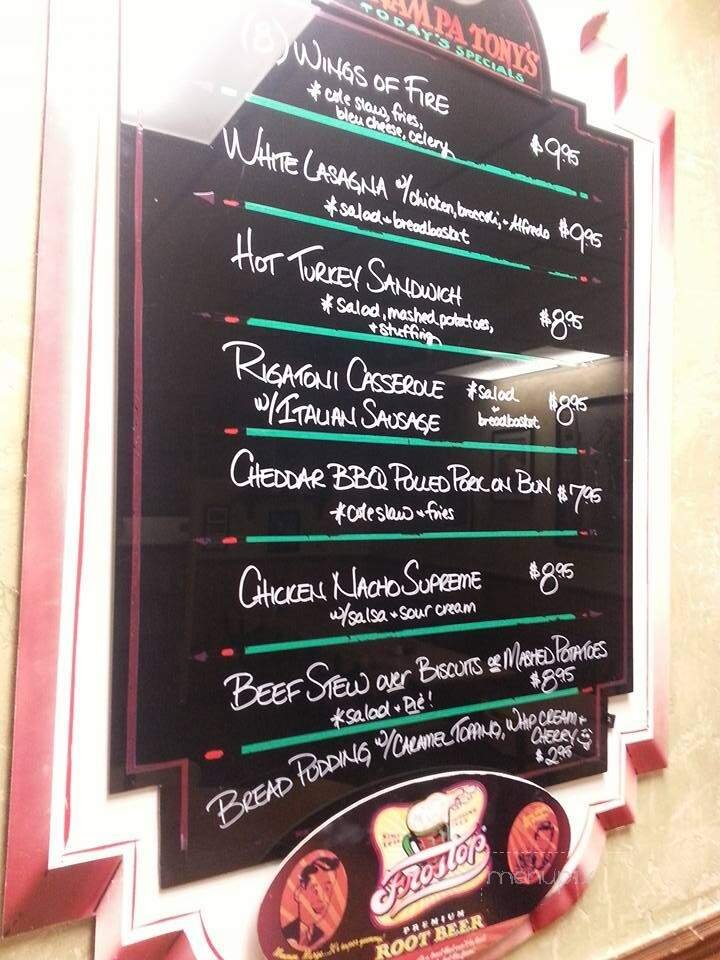 TAMPA TONY'S
TODAY'S SPECIALS
(8) WINGS OF FIRE
* cole slaw, fries,
bleu cheese, celery
$9.95
WHITE LASAGNA w/chicken, broccoli, + Alfredo $9.95
*salad + breadbasket
HOT TURKEY SANDWICH
* Salad, mashed potatoes,
+ stuffing
$8.95
RIGATONI CASSEROLE *salad
w/ITALIAN SAUSAGE + breadbasket $8.95
CHEDDAR BBQ PULLED PORK ON BUN $7.95
*Coleslaw + fries
CHICKEN NACHO SUPREME $8.95
w/salsa + sour cream
BEEF STEW over BISCUITS or MASHED POTATOES
*salad + Pie! $8.95
BREAD PUDDING w/CARAMEL TOPPING, WHIP CREAM +
CHERRY
$2.95
Frostop
PREMIUM
ROOT BEER
menupix